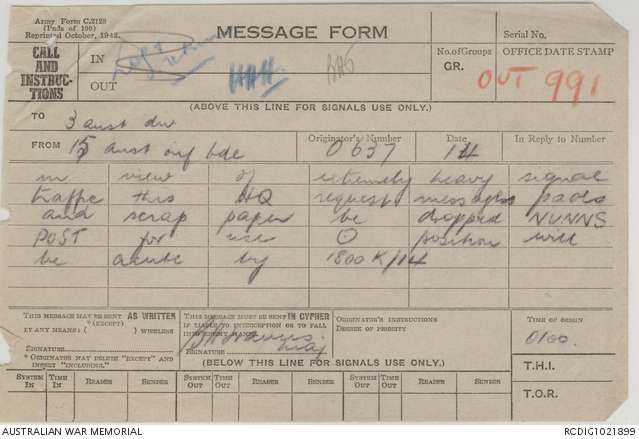 Army Form C.2128
(Pads of 100)
Reprinted October, 1942.
MESSAGE FORM
Serial No.
CALL
AND
INSTRUC-
TIONS
IN
OUT
No. of Groups
GR.
OFFICE DATE STAMP
OUT 991
(ABOVE THIS LINE FOR SIGNALS USE ONLY.)
TO 3 aust div
FROM 15 aust inf bde
Originator's Number
0637
Date
14
In Reply to Number
in view of extremely heavy signal
traffic this HQ request message pads
and scrap paper be dropped NUNNS
POST for use O position will
be acute by 1800 K/14
THIS MESSAGE MAY BE SENT AS WRITTEN
(EXCEPT)
BY ANY MEANS: ( ) WIRELESS
SIGNATURE
* ORIGINATOR MAY DELETE "EXCEPT" AND
INSERT "INCLUDING."
THIS MESSAGE MUST BE SENT IN CYPHER
IF LIABLE TO INTERCEPTION OR TO FALL
INTO ENEMY HANDS
SIGNATURE
Maj
ORIGINATOR'S INSTRUCTIONS
DEGREE OF PRIORITY
TIME OF ORIGIN
0100
(BELOW THIS LINE FOR SIGNALS USE ONLY.)
T.H.I.
T.O.R.
SYSTEM IN TIME IN READER SENDER SYSTEM OUT TIME OUT READER SENDER SYSTEM OUT TIME OUT READER SENDER
AUSTRALIAN WAR MEMORIAL
RCDIG1021899